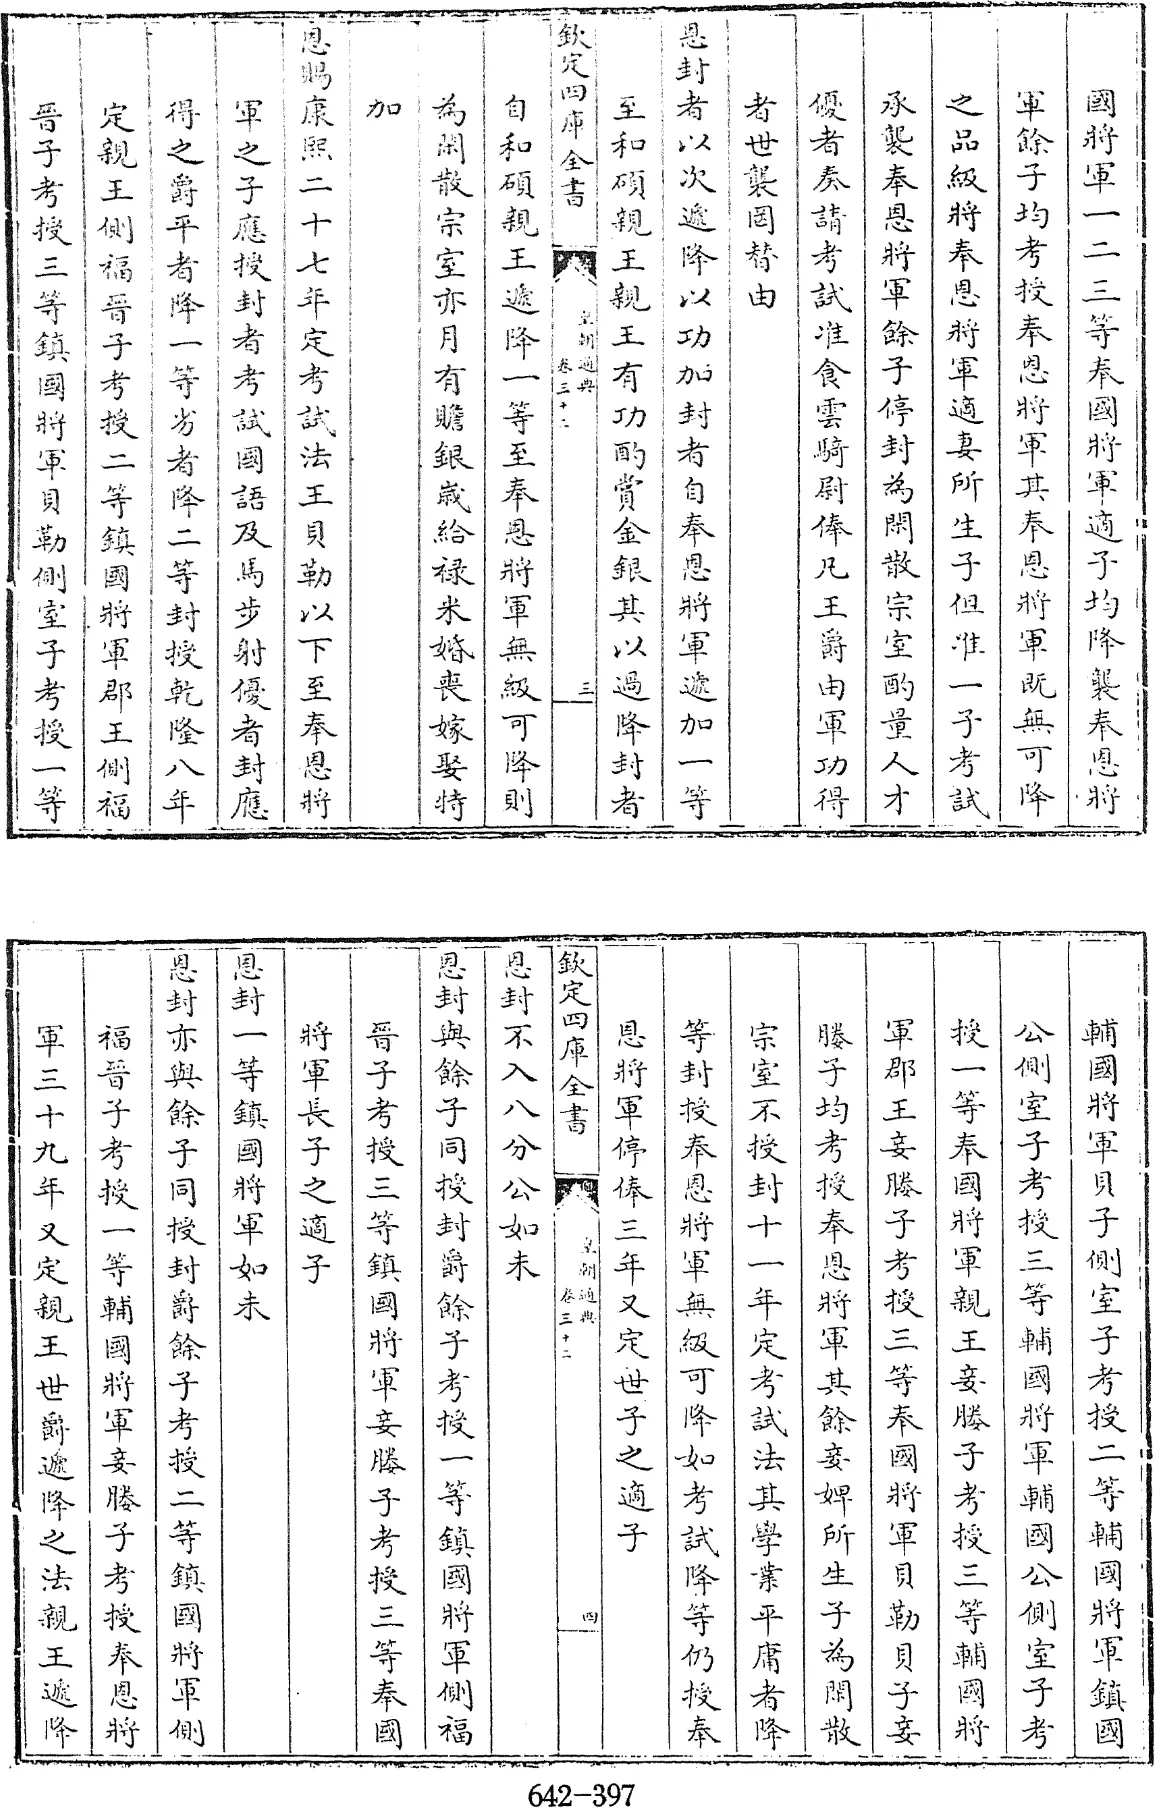 國將軍一二三等奉國將軍適子均降襲奉恩將
軍餘子均考授奉恩將軍其奉恩將軍既無可降
之品級將奉恩將軍適妻所生子但准一子考試
承襲奉恩將軍餘子停封為閑散宗室酌量人才
優者奏請考試准食雲騎尉俸凡王爵由軍功得
者世襲罔替由
恩封者以次遞降以功加封者自奉恩將軍遞加一等
至和碩親王親王有功酌賞金銀其以過降封者
欽定四庫全書
皇朝通典
卷三十二
三
自和碩親王遞降一等至奉恩將軍無級可降則
為閑散宗室亦月有贍銀歲給祿米婚喪嫁娶特
加
恩賜康熙二十七年定考試法王貝勒以下至奉恩將
軍之子應授封者考試國語及馬步射優者封應
得之爵平者降一等劣者降二等封授乾隆八年
定親王側福晉子考授二等鎮國將軍郡王側福
晉子考授三等鎮國將軍貝勒側室子考授一等
輔國將軍貝子側室子考授二等輔國將軍鎮國
公側室子考授三等輔國將軍輔國公側室子考
授一等奉國將軍親王妾媵子考授三等輔國將
軍郡王妾媵子考授三等奉國將軍貝勒貝子妾
媵子均考授奉恩將軍其餘妾婢所生子為閑散
宗室不授封十一年定考試法其學業平庸者降
等封授奉恩將軍無級可降如考試降等仍授奉
恩將軍停俸三年又定世子之適子
欽定四庫全書
皇朝通典
卷三十二
四
恩封不入八分公如未
恩封與餘子同授封爵餘子考授一等鎮國將軍側福
晉子考授三等鎮國將軍妾媵子考授三等奉國
將軍長子之適子
恩封一等鎮國將軍如未
恩封亦與餘子同授封爵餘子考授二等鎮國將軍側
福晉子考授一等輔國將軍妾媵子考授奉恩將
軍三十九年又定親王世爵遞降之法親王遞降
642-397